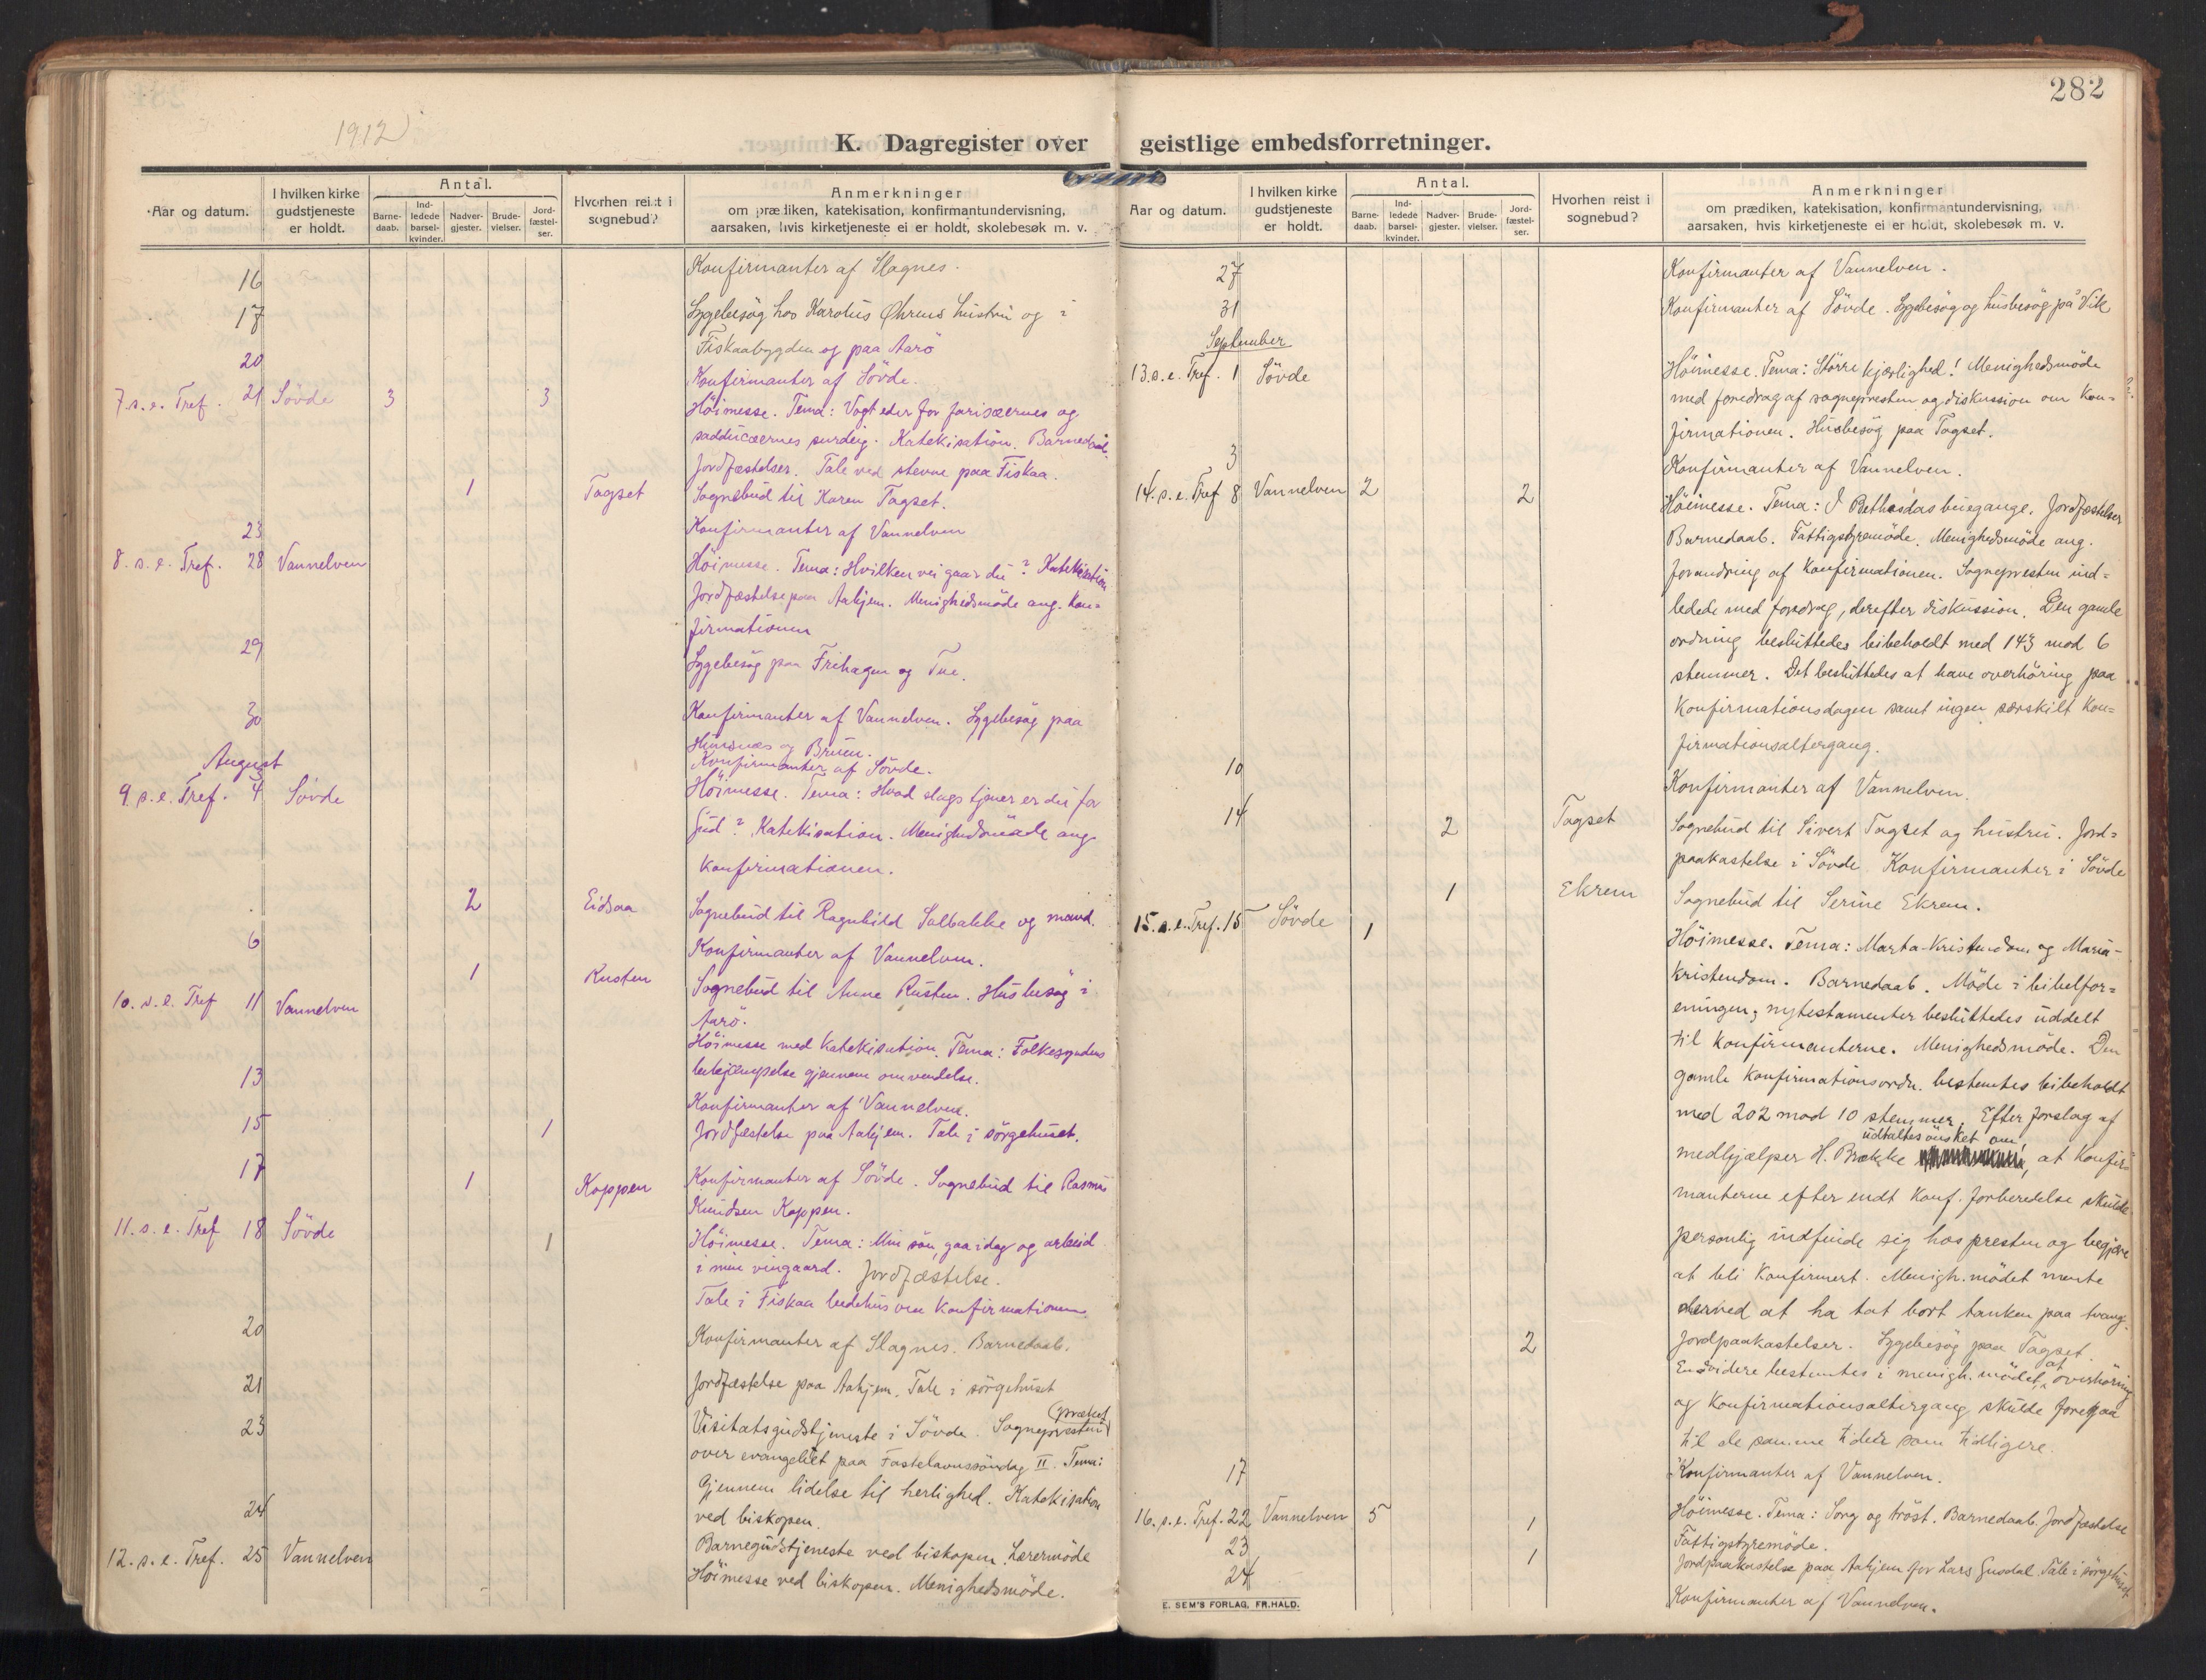 282
1912
K. Dagregister over geistlige embedsforretninger.
Aar og datum.
I hvilken kirke gudstjeneste er holdt.
Antal.
Barne-daab.
Ind-ledede barsel-kvinder.
Nadver-gjester.
Brude-vielser.
Jord-fæstel-ser.
Hvorhen reist i sognebud?
Anmerkninger
om prædiken, katekisation, konfirmantundervisning,
aarsaken, hvis kirketjeneste ei er holdt, skolebesøk m. v.
16 Konfirmanter af Slagnes.
17 Sygebesøg hos Karolus Øhrens hustru og i
Fiskaabygden og paa Aarö
20 Konfirmanter af Sövde.
7. s. e. Tref. 21 Sövde 3 3 Höimesse. Tema: Vogt eder for farisæernes og
sadducæernes surdeig. Katekisation. Barnedaab.
Jordfæstelser. Tale ved stevne paa Fiskaa.
1 Tagset Sognebud til Karen Tagset.
23 Konfirmanter af Vannelven
8. s. e. Tref. 28 Vannelven Höimesse. Tema: Hvilken vei gaar du? Katekisation
Jordfæstelse paa Aahjem. Menighedsmöde ang. Kon=
firmationen
29 Sygebesøg paa Frihagen og Tue.
30 Konfirmanter af Vannelven. Sygebesøg paa
og Bruen.
August
3 Konfirmanter af Sövde.
9. s. e. Tref. 4 Sövde Höimesse. Tema: Hvad slags tjener er du for
Gud? Katekisation. Menighedsmöde ang.
Konfirmationen.
2 Eidsaa Sognebud til Ragnhild Solbakke og mand.
6 Konfirmanter af Vannelven.
1 Rusten Sognebud til Anne Rusten. Husbesøg i
Aarö.
10. s. e. Tref 11 Vannelven Höimesse med Katekisation. Tema: Folkesyndens
bekjæmpelse gjennem omvendelse.
13 Konfirmanter af Vannelven.
15 1 Jordfæstelse paa Aahjem. Tale i sörgehuset.
17 1 Koppen Konfirmanter af Sövde. Sognebud til Rasmus
Knudsen Koppen.
11. s. e. Tref 18 Sövde 1 Höimesse. Tema: Min sön, gaa idag og arbeid
i min vingaard. Jordfæstelse.
Tale i Fiskaa bedehus om Konfirmationen.
20 Konfirmanter af Slagnes. Barnedaab.
21 Jordfæstelse paa Aahjem. Tale i sörgehuset
23 Visitatsgudstjeneste i Sövde. Sognepresten præket
over evangeliet paa Fastelavnssöndag II. Tema:
Gjennem lidelse til herlighed. Katekisation
ved biskopen.
24 Barnegudstjeneste ved biskopen. Lærermöde
12. s. e. Tref. 25 Vannelven Höimesse ved biskopen. Menighedsmöde.
Aar og datum.
I hvilken kirke gudstjeneste er holdt.
Antal.
Barne-daab.
Ind-ledede barsel-kvinder.
Nadver-gjester.
Brude-vielser.
Jord-fæstel-ser.
Hvorhen reist i sognebud?
Anmerkninger
om prædiken, katekisation, konfirmantundervisning,
aarsaken, hvis kirketjeneste ei er holdt, skolebesøk m. v.
27 Konfirmanter af Vannelven.
31 Konfirmanter af Sövde. Sygebesøg og husbesøg på Vik
September
13. s. e. Tref. 1 Sövde Höimesse. Tema: Större kjærlighed! Menighedsmöde
med foredrag af sognepresten og diskussion om Kon=
firmationen. Husbesøg paa Tagset.
3 Konfirmanter af Vannelven.
14. s. e. Tref 8 Vannelven 2 2 Höimesse. Tema: I Bethesdas buegange. Jordfæstelser
Barnedaab. Fattigstyremöde. Menighedsmöde ang.
forandring af Konfirmationen. Sognepresten ind=
ledede med foredrag, derefter diskussion. Den gamle
ordning besluttedes bibeholdt med 143 mod 6
stemmer. Det besluttedes at have overhöring paa
Konfirmationsdagen samt ingen særskilt Kon=
firmationsaltergang.
10 Konfirmanter af Vannelven.
14 2 Tagset Sognebud til Sivert Tagset og hustru. Jord=
paakastelse i Sövde Konfirmanter i Sövde
1 Ekrem Sognebud til Serine Ekrem.
15. s. e. Tref. 15 Sövde 1 Höimesse. Tema: Marta-Kristendom og Maria-
kristendom. Barnedaab. Möde i bibelfor=
eningen; nytestamenter besluttedes uddelt
til Konfirmanterne. Menighedsmöde. Den
gamle Konfirmationsordn. bestemtes bibeholdt
med 202 mod 10 stemmer. Efter forslag af
medhjælper H. Brekke udtaltes önsket om, at Konfir=
manterne efter endt Konf. forberedelse skulde
personlig indfinde sig hos presten og begjære
at bli Konfirmert. Menigh. mödet mente
derved at ha tat bort tanken paa tvang.
2 Jordpaakastelser. Sygebesøg paa Tagset.
Endvidere bestemtes i menigh. mödet, at overhöring
og Konfirmationsaltergang skulde foregaa
til de samme tider som tidligere.
17 Konfirmanter af Vannelven.
16. s. e. Tref. 22 Vannelven 5 1 Höimesse. Tema: Sorg og tröst. Barnedaab. Jordfæstelse
Fattigstyremöde.
23 1 Jordpaakastelse paa Aahjem for Lars Gusdal. Tale i sörgehuset
24 Konfirmanter af Vannelven.
E. SEM'S FORLAG, FR.HALD.